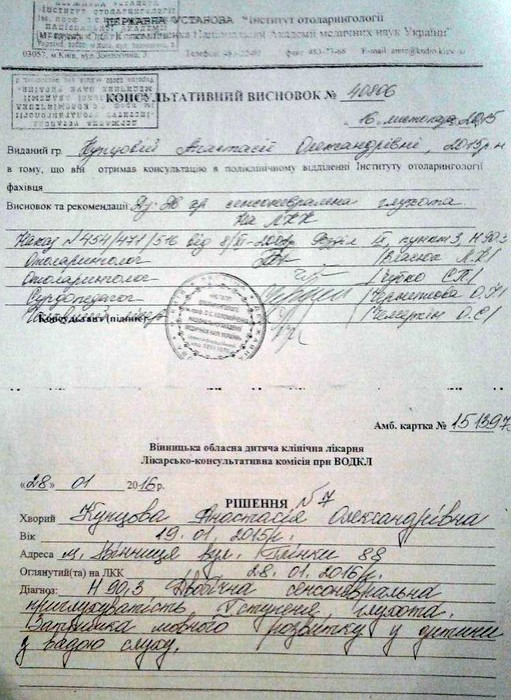 ДЕРЖАВНА УСТАНОВА "Інститут отоларингології
Національної Академії медичних наук України"
03057, м.Київ, вул. Зоологічна, 3. Телефон: факс: 483-73-68 E-mail:
КОНСУЛЬТАТИВНИЙ ВИСНОВОК № 40806
16 листопада 2015
Виданий гр. Кунцовій Анастасії Олександрівні, 2015 р.н
в тому, що він отримав консультацію в поліклінічному відділенні Інституту отоларингології
фахівця
Висновок та рекомендації Дз: хр сенсоневральна глухота
На ЛКК
Наказ № 454/471/516 від 8/XI-2001р Розділ пункт 3, H 90.3
Отоларинголог
Отоларинголог /Чубко С.П/
Сурдопедагог
Консультант (підпис)
Амб. картка № 151397
Вінницька обласна дитяча клінічна лікарня
Лікарсько-консультативна комісія при ВОДКЛ
«28» 01 2016 р.
РІШЕННЯ № 7
Хворий Кунцова Анастасія Олександрівна
Вік 19.01.2015р.
Адреса м. Вінниця вул. 88
Оглянутий(та) на ЛКК 28.01.2016р.
Діагноз: H 90,3 Двобічна сенсоневральна
приглухуватість, ступеня, глухота.
Затримка мовного розвитку у дитини
з вадою слуху.